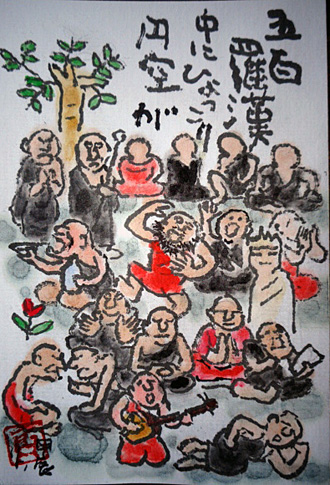 五百
羅漢
中にひょっこり
円空が